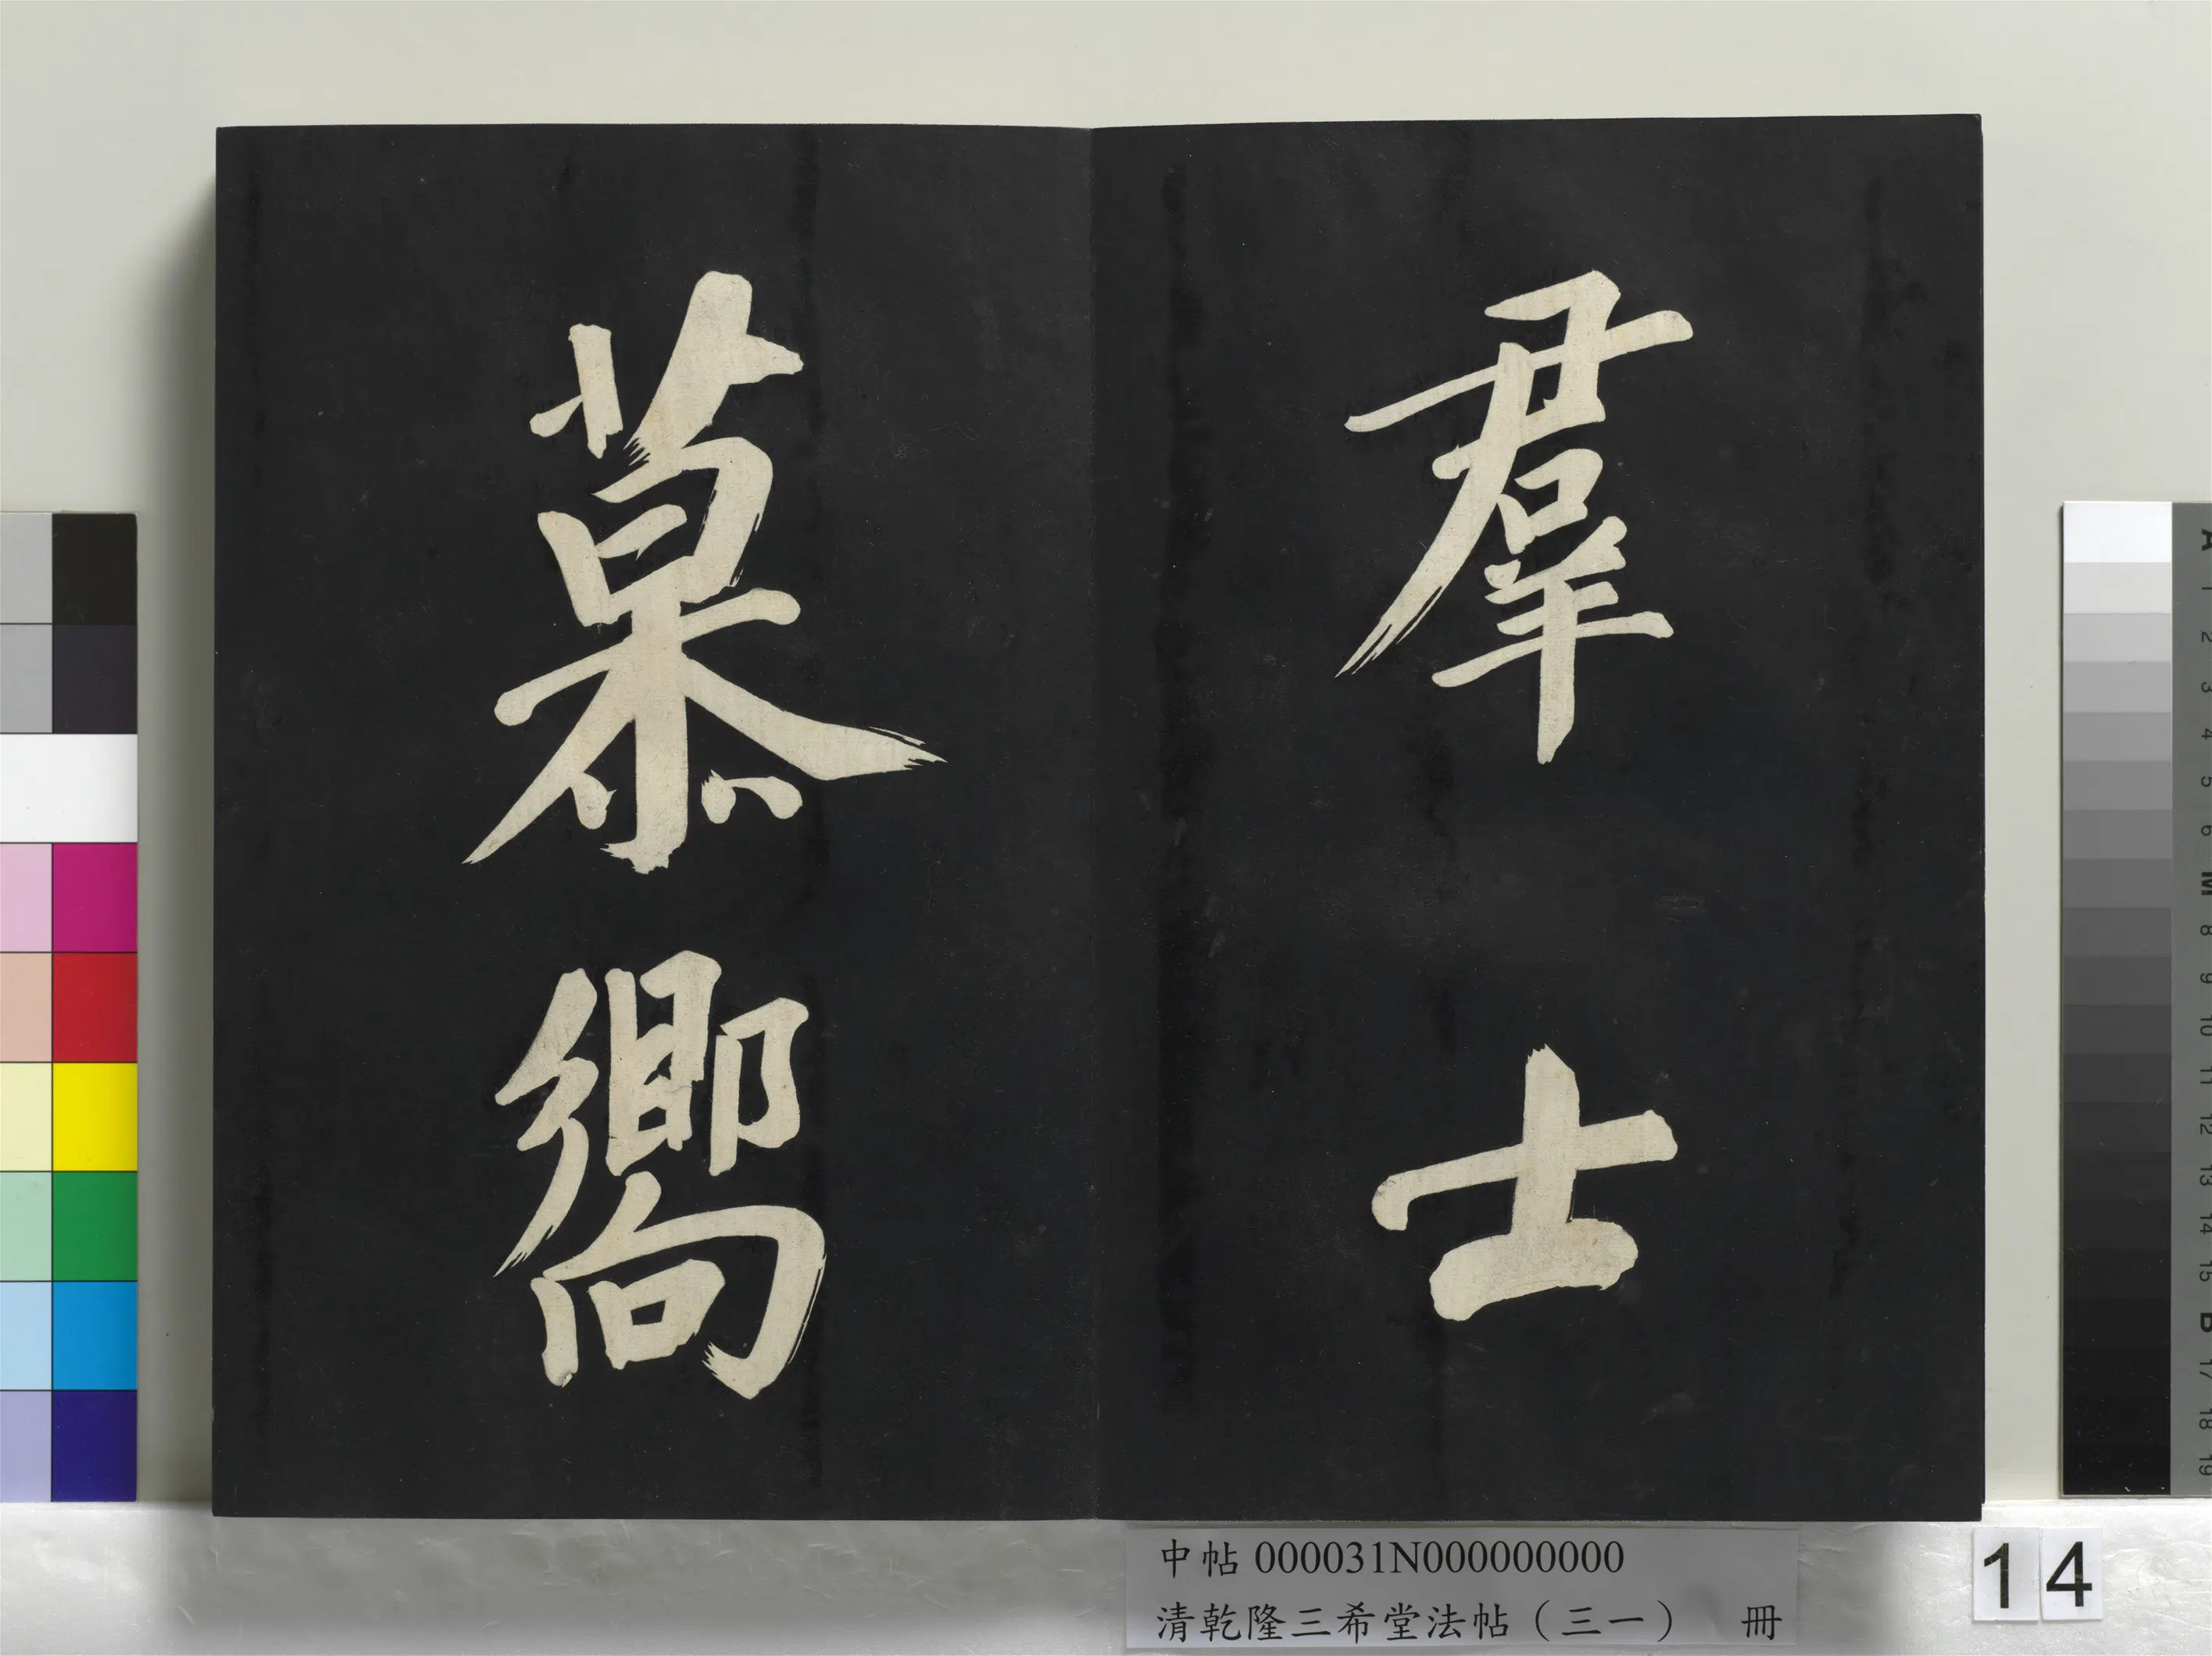 羣士
慕嚮
中帖000031N000000000
清乾隆三希堂法帖（三一） 冊
14
A
1
2
3
4
5
6
M
8
9
10
11
12
13
14
15
B
17
18
19